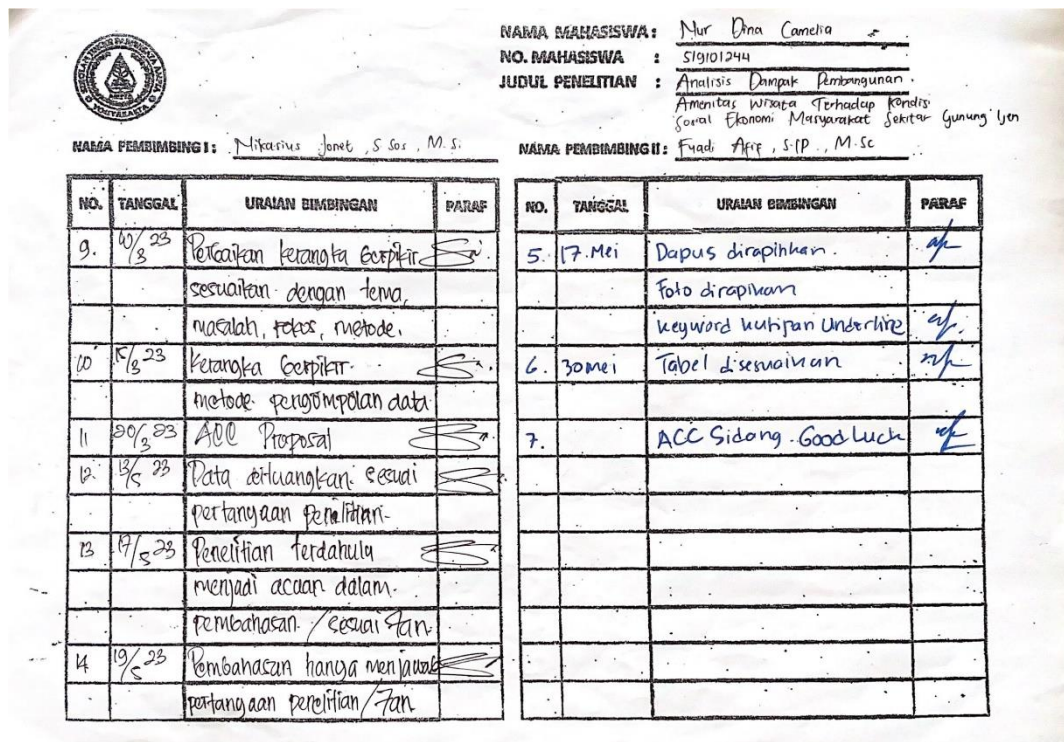 NAMA MAHASISWA : Nur Dina Camelia
NO. MAHASISWA : 519101244
JUDUL PENELITIAN : Analisis Dampak Pembangunan
Amenitas Wisata Terhadap Kondisi
Sosial Ekonomi Masyarakat Sekitar Gunung Ijen
NAMA PEMBIMBING I : Mikasius Jonet, S Sos, M. Si
NAMA PEMBIMBING II : Fuadi Afif, S.IP., M.Sc
NO. TANGGAL URAIAN BIMBINGAN PARAF
9. 10/3 23 Perbaikan kerangka berpikir
sesuaikan dengan tema,
masalah, fokos, metode.
10 15/3 23 Kerangka berpikir.
metode pengompolan data
11 20/3 23 ACC Proposal
12. 13/5 23 Data dituangkan sesuai
pertanyaan penelitian.
13 17/5 23 Penelitian terdahulu
menjadi acuan dalam
pembahasan / sesuai
14 19/5 23 Pembahasan hanya menjawab
pertanyaan penelitian /
NO. TANGGAL URAIAN BIMBINGAN PARAF
5. 17.Mei Dapus dirapihkan.
Foto dirapikan
keyword kutipan Underline
6. 30 mei Tabel disesuaikan
7. ACC Sidang. Good Luck